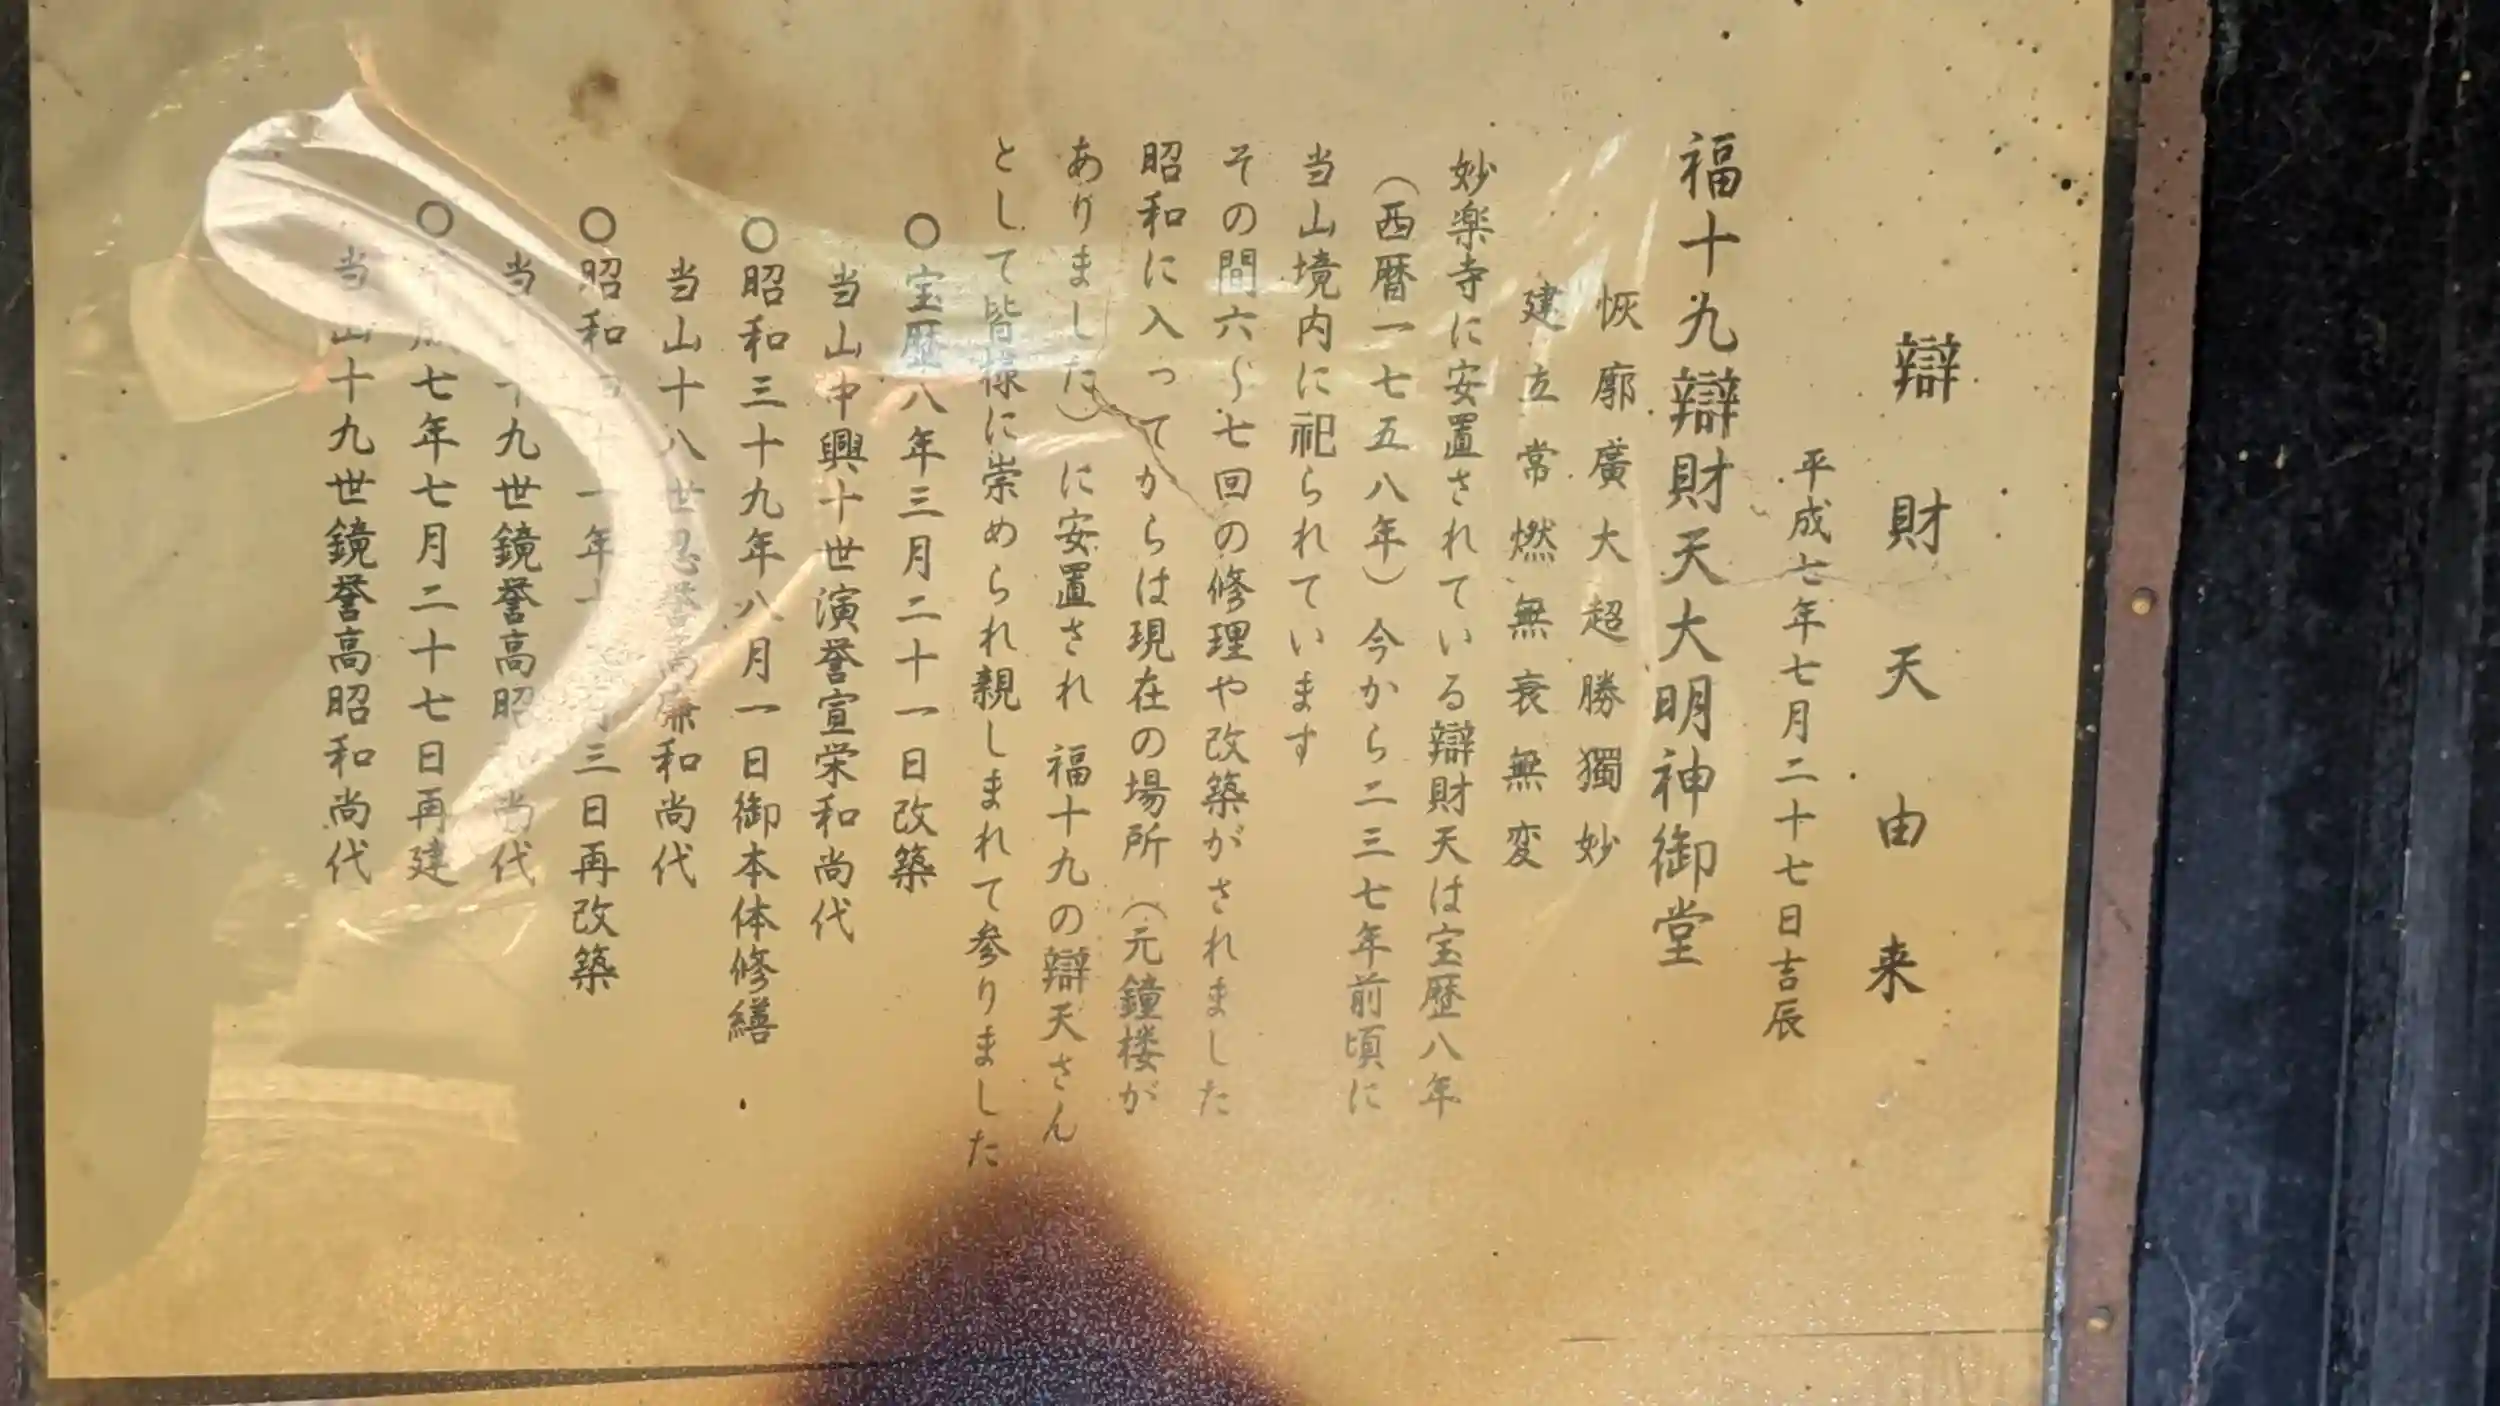 辯財天由来
平成七年七月二十七日吉辰
福十九辯財天大明神御堂
恢廓廣大超勝獨妙
建立常燃無衰無変
妙楽寺に安置されている辯財天は宝歴八年
(西暦一七五八年)今から二三七年前頃に
当山境内に祀られています
その間六〜七回の修理や改築がされました
昭和に入ってからは現在の場所(元鐘楼が
ありました)に安置され 福十九の辯天さん
として皆様に崇められ親しまれて参りました
○宝歴八年三月二十一日改築
当山中興十世演誉宣栄和尚代
○昭和三十九年八月一日御本体修繕
当山十八世忍誉高廉和尚代
○昭和 一年 三日再改築
当 十九世鏡誉高昭 尚代
○ 成七年七月二十七日再建
当山十九世鏡誉高昭和尚代